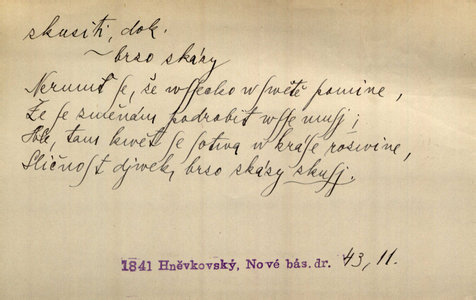 skusiti, dok.
~ brso skázy
Nerumt se, že wssecko w swětě pomine,
Že se změnám podrobit wsse musj;
Hle, tam kwět se sotwa w kráse rozwine,
Sličnost djwek, brso skázy skusj.
1841 Hněvkovský, Nové bás. dr. 43, 11.